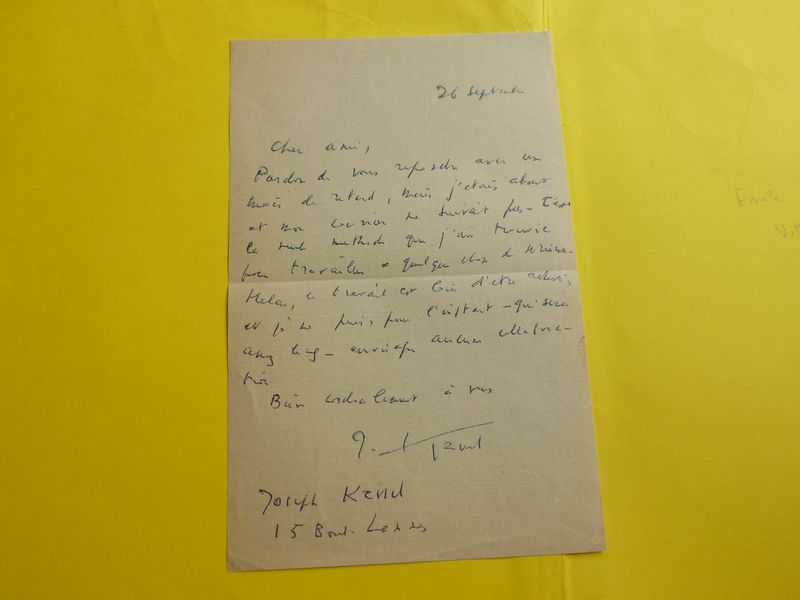 26 Septembre
Cher ami,
Pardon de vous répondre avec un
mois de retard, mais j'étais absent
et mon courrier ne suivait pas - C'est
la seule methode que j'ai trouvée
pour travailler a quelque chose de sérieux.
Helas, ce travail est loin d'etre achevé,
et je ne puis, pour l'instant - qui sera
assez long - envisager aucune collabora-
tion
Bien cordialement à vous
J. Kessel
Joseph Kessel
15 Boul. Lannes
Emile